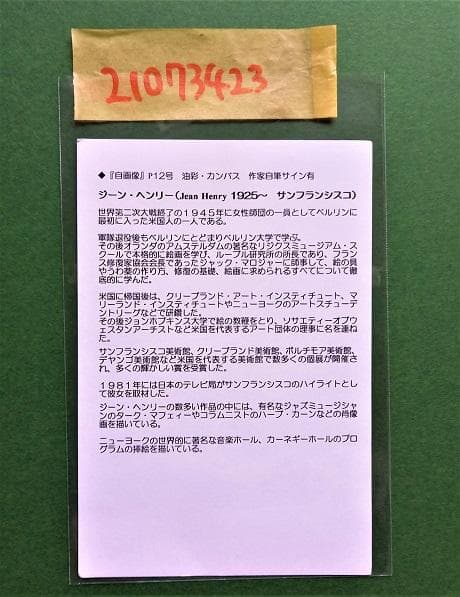 21073423
◆『自画像』P12号 油彩・カンバス 作家自筆サイン有
ジーン・ヘンリー(Jean Henry 1925～ サンフランシスコ)
世界第二次大戦終了の1945年に女性師団の一員としてベルリンに
最初に入った米国人の一人である。
軍隊退役後もベルリンにとどまりベルリン大学で学ぶ。
その後オランダのアムステルダムの著名なリジクスミュージアム・ス
クールで本格的に絵画を学び、ルーブル研究所の所長であり、フラン
ス修復家協会会長であったジャック・マロジャーに師事して、絵の具
やうわ薬の作り方、修復の基礎、絵画に求められるすべてについて徹
底的に学んだ。
米国に帰国後は、クリーブランド・アート・インスティチュート、マ
リーランド・インスティチュートやニューヨークのアートスチューデ
ントリーグなどで研鑽した。
その後ジョンホプキンス大学で絵の教鞭をとり、ソサエティーオブウ
ェスタンアーチストなど米国を代表するアート団体の理事に名を連ね
た。
サンフランシスコ美術館、クリーブランド美術館、ボルチモア美術館、
デヤンゴ美術館など米国を代表する美術館で数多くの個展が開催さ
れ、多くの輝かしい賞を受賞した。
1981年には日本のテレビ局がサンフランシスコのハイライトとし
て彼女を取材した。
ジーン・ヘンリーの数多い作品の中には、有名なジャズミュージシャ
ンのターク・マフェィーやコラムニストのハーブ・カーンなどの肖像
画を描いている。
ニューヨークの世界的に著名な音楽ホール、カーネギーホールのプロ
グラムの挿絵を描いている。